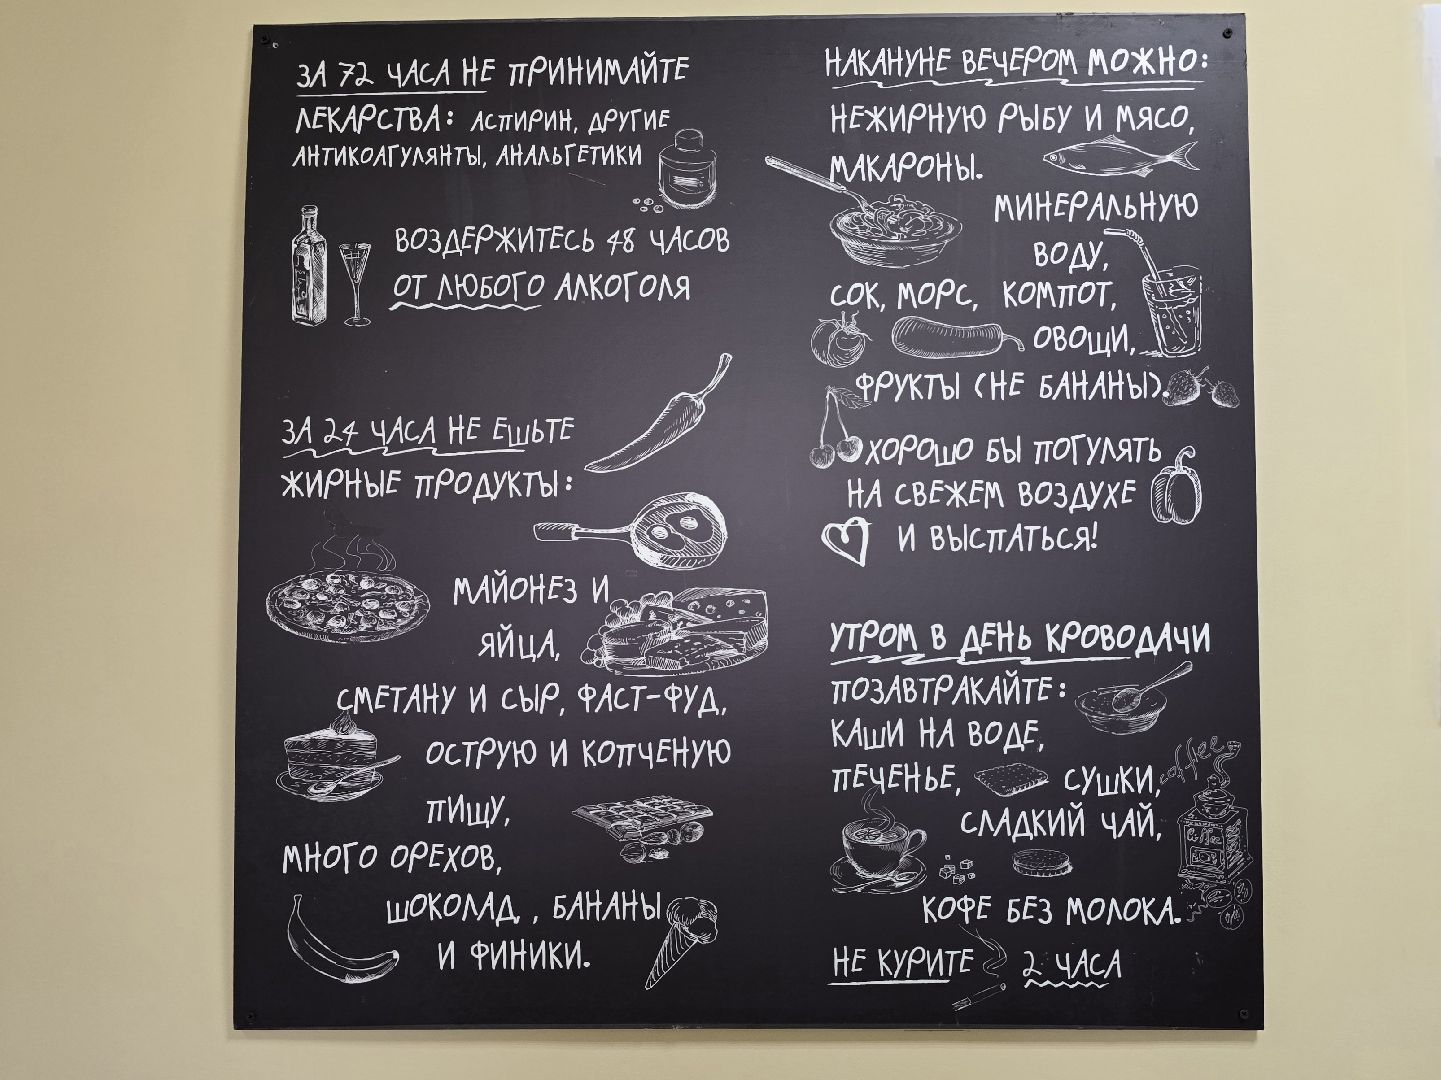 ЗА 72 ЧАСА НЕ ПРИНИМАЙТЕ
ЛЕКАРСТВА: АСПИРИН, ДРУГИЕ
АНТИКОАГУЛЯНТЫ, АНАЛЬГЕТИКИ
ВОЗДЕРЖИТЕСЬ 48 ЧАСОВ
ОТ ЛЮБОГО АЛКОГОЛЯ
ЗА 24 ЧАСА НЕ ЕШЬТЕ
ЖИРНЫЕ ПРОДУКТЫ:
МАЙОНЕЗ И
ЯЙЦА,
СМЕТАНУ И СЫР, ФАСТ-ФУД,
ОСТРУЮ И КОПЧЕНУЮ
ПИЩУ,
МНОГО ОРЕХОВ,
ШОКОЛАД, , БАНАНЫ
И ФИНИКИ.
НАКАНУНЕ ВЕЧЕРОМ МОЖНО:
НЕЖИРНУЮ РЫБУ И МЯСО,
МАКАРОНЫ.
МИНЕРАЛЬНУЮ
ВОДУ,
СОК, МОРС, КОМПОТ,
ОВОЩИ,
ФРУКТЫ (НЕ БАНАНЫ).
ХОРОШО БЫ ПОГУЛЯТЬ
НА СВЕЖЕМ ВОЗДУХЕ
И ВЫСПАТЬСЯ!
УТРОМ В ДЕНЬ КРОВОДАЧИ
ПОЗАВТРАКАЙТЕ:
КАШИ НА ВОДЕ,
ПЕЧЕНЬЕ, СУШКИ,
coffee
СЛАДКИЙ ЧАЙ,
КОФЕ БЕЗ МОЛОКА.
НЕ КУРИТЕ 2 ЧАСА